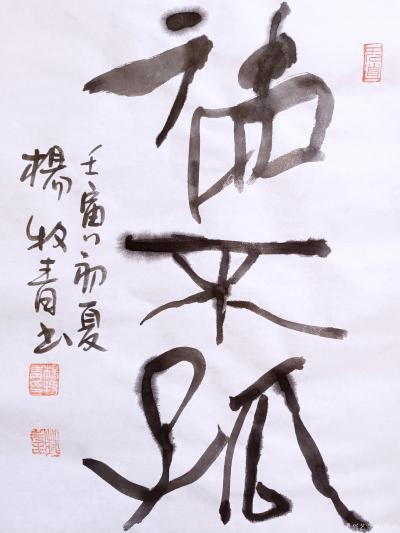 德不孤
壬寅初夏
楊牧青书